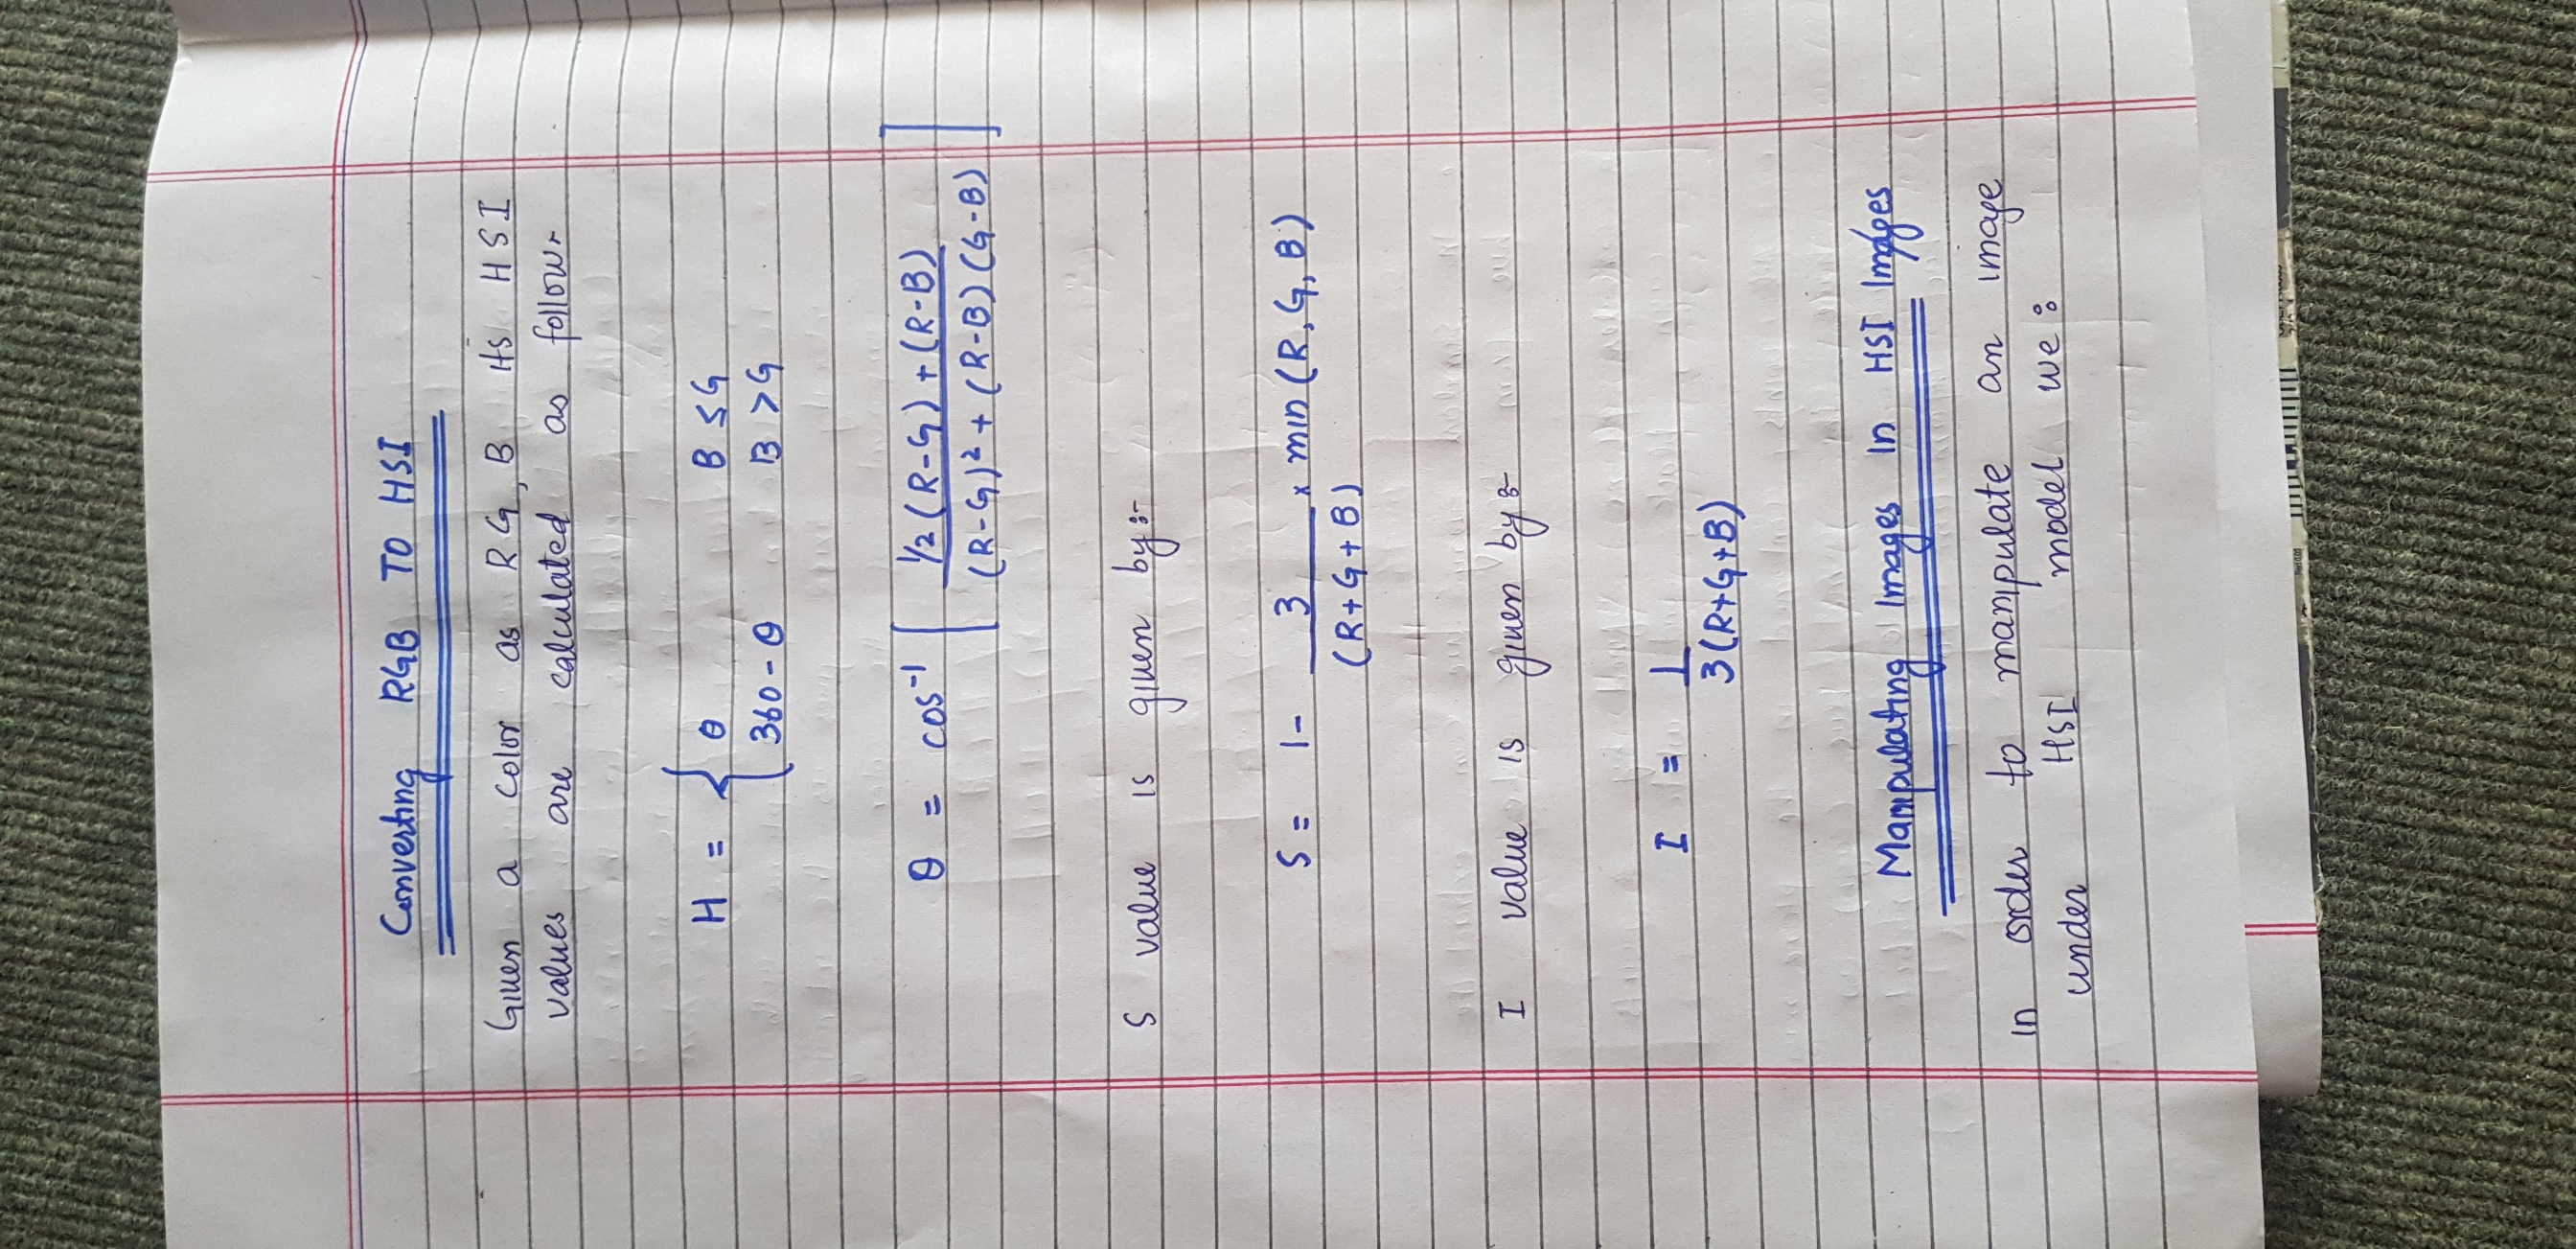 Converting RGB TO HSI
Given a color as R G, B Its HSI
values are calculated as follow,
H = { θ B ≤ G
360 - θ B > G
θ = cos⁻¹ [ 1/2 (R-G) + (R-B)
(R-G)² + (R-B) (G-B) ]
S value is given by:-
S = 1 - 3 × min (R, G, B)
(R+G+B)
I value is given by:-
I = 1
3(R+G+B)
Manipulating Images In HSI Images
In order to manipulate an image
under HSI model we: